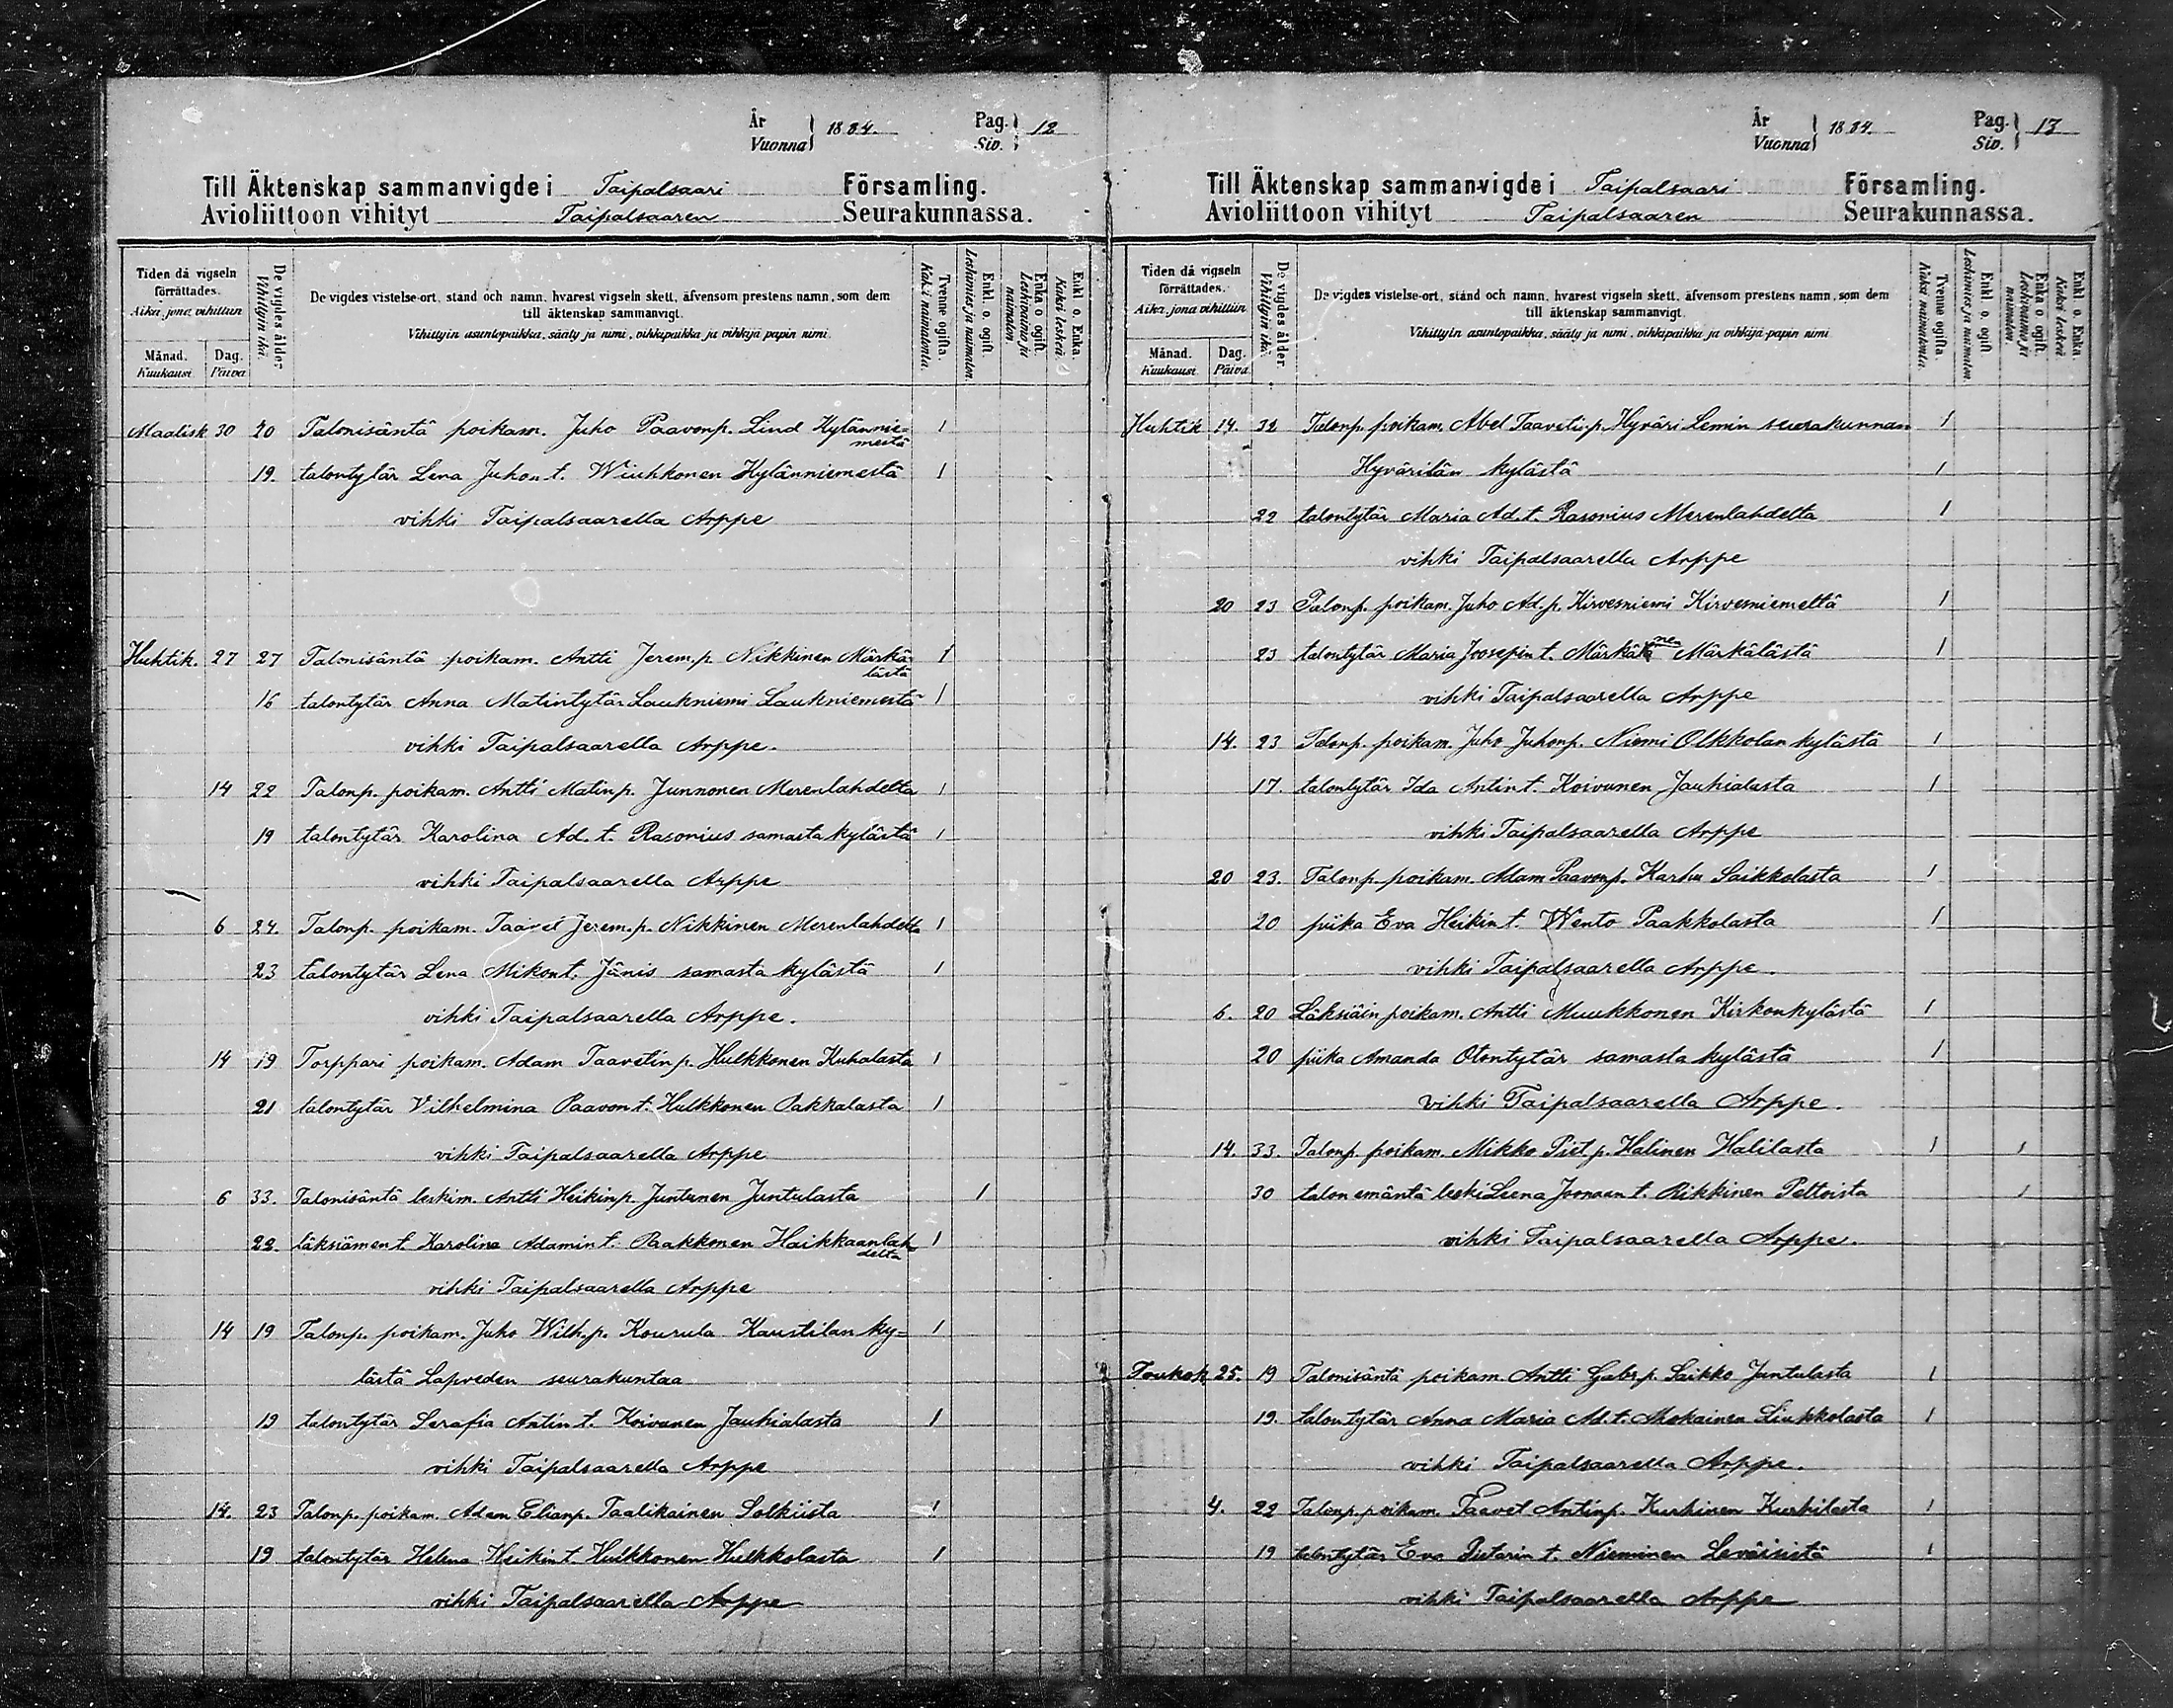 År
Vuonna } 1884.
Pag.
Siv. } 12
Till Äktenskap sammanvigde i Taipalsaari Församling.
Avioliittoon vihityt Taipalsaaren Seurakunnassa.
Tiden då vigseln förrättades.
Aika, jona vihittiin
Månad.
Kuukausi
Dag.
Päivä
De vigdes ålder
Vihittyin ikä.
De vigdes vistelse-ort, stånd och namn, hvarest vigseln skett, äfvensom prestens namn, som dem
till äktenskap sammanvigt.
Vihittyin asuntopaikka, sääty ja nimi, vihkipaikka ja vihkijä papin nimi.
Tvenne ogifta.
Kaksi naimatonta.
Enkl. o. ogift.
Leskimies ja naimaton.
Enka o. ogift.
Leskivaimo ja naimaton.
Enkl o. Enka.
Kaksi leskeä
Maalisk 30 20 Talonisäntä poikam. Juho Paavonp. Lind Kylännie=
mestä 1
19. talontytär Lena Juhon t. Wiuhkonen Kylänniemestä 1
vihki Taipalsaarella Arppe
Huhtik. 27 27 Talonisäntä poikam. Antti Jerem.p. Nikkinen Märkä=
lästä 1
16 talontytär Anna Matintytär Laukniemi Laukniemestä 1
vihki Taipalsaarella Arppe.
14 22 Talonp. poikam. Antti Matinp. Junnonen Merenlahdelta 1
19 talontytär Karolina Ad. t. Rasonius samasta kylästä 1
vihki Taipalsaarella Arppe
6 24. Talonp. poikam. Taavet Jerem.p. Nikkinen Merenlahdelta 1
23 talontytär Lena Mikont. Jänis samasta kylästä 1
vihki Taipalsaarella Arppe.
14 19 Torppari poikam. Adam Taavetin p. Hulkkonen Kuhalasta 1
21 talontytär Vilhelmina Paavon t. Hulkkonen Pakkalasta 1
vihki Taipalsaarella Arppe
6 33. Talonisäntä leskim. Antti Heikinp. Juntunen Juntulasta 1
22. läksiämen t. Karolina Adamin t. Paakkonen Haikkaanlah
delta 1
vihki Taipalsaarella Arppe
14 19 Talonp. poikam. Juho Wilh.p. Kourula Kaustilan ky= 1
lästä Lapveden seurakuntaa
19 talontytär Serafia Antin t. Koivunen Jauhialasta 1
vihki Taipalsaarella Arppe
14. 23 Talonp. poikam. Adam Elianp. Taalikainen Solkiista 1
19 talontytär Helena Heikin t. Hulkkonen Hulkkolasta 1
vihki Taipalsaarella Arppe
År
Vuonna } 1884.
Pag.
Siv. } 13
Till Äktenskap sammanvigde i Taipalsaari Församling.
Avioliittoon vihityt Taipalsaaren Seurakunnassa.
Tiden då vigseln förrättades.
Aika, jona vihittiin
Månad.
Kuukausi.
Dag.
Päivä
De vigdes ålder
Vihittyin ikä.
De vigdes vistelse-ort, stånd och namn, hvarest vigseln skett, äfvensom prestens namn, som dem
till äktenskap sammanvigt.
Vihittyin asuntopaikka, sääty ja nimi, vihkipaikka ja vihkijä-papin nimi
Tvenne ogifta.
Kaksi naimatonta.
Enkl. o. ogift
Leskimies ja naimaton.
Enka o. ogift.
Leskivaimo ja naimaton.
Enkl. o. Enka
Kaksi leskeä.
Huhtik 14. 32 Talonp. poikam. Abel Taavetinp. Hyväri Lemin seurakunnan 1
Hyvärilän kylästä 1
22 talontytär Maria Ad. t. Rasonius Merenlahdelta 1
vihki Taipalsaarella Arppe
20 23 Talonp. poikam. Juho Ad. p. Kirvesniemi Kirvesniemeltä 1
23 talontytär Maria Joosepin t. Märkälä nen Märkälästä 1
vihki Taipalsaarella Arppe
14. 23 Talonp. poikam. Juho Juhonp. Niemi Olkkolan kylästä 1
17. talontytär Ida Antin t. Koivunen Jauhialasta 1
vihki Taipalsaarella Arppe
20 23. Talonp. poikam. Adam Paavonp. Karhu Saikkolasta 1
20 piika Eva Heikin t. Wento Paakkolasta 1
vihki Taipalsaarella Arppe.
6. 20 Läksiäin poikam. Antti Muukkonen Kirkonkylästä 1
20 piika Amanda Otontytär samasta kylästä 1
vihki Taipalsaarella Arppe.
14. 33. Talonp. poikam. Mikko Piet.p. Halinen Halilasta 1 1
30 talon emäntä leski Leena Joonaan t. Rikkinen Peltoista 1
vihki Taipalsaarella Arppe.
Toukok 25. 19 Talonisäntä poikam. Antti Gabr.p. Saikko Juntulasta 1
19. talontytär Anna Maria Ad. t. Ahokainen Liukkolasta 1
vihki Taipalsaarella Arppe.
4. 22 Talonp. poikam. Taavet Antinp. Kurkinen Kurkilasta 1
19 talontytär Eva Pietarin t. Nieminen Leväisistä 1
vihki Taipalsaarella Arppe